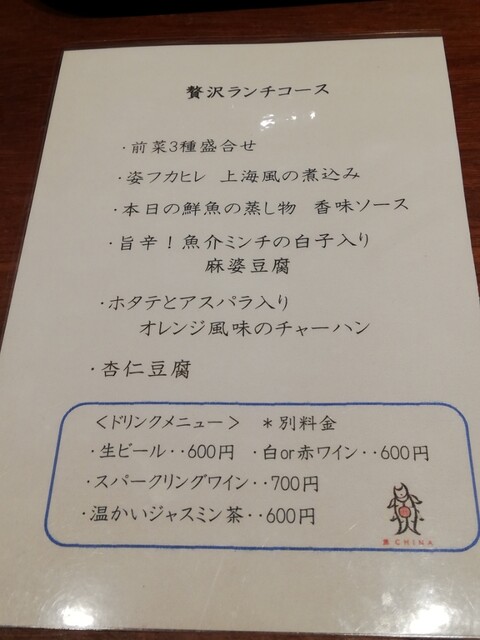 贅沢ランチコース
・前菜3種盛合せ
・姿フカヒレ 上海風の煮込み
・本日の鮮魚の蒸し物 香味ソース
・旨辛！魚介ミンチの白子入り
麻婆豆腐
・ホタテとアスパラ入り
オレンジ風味のチャーハン
・杏仁豆腐
＜ドリンクメニュー＞ ＊別料金
・生ビール・・600円 ・白or赤ワイン・・600円
・スパークリングワイン・・700円
・温かいジャスミン茶・・600円
CHINA